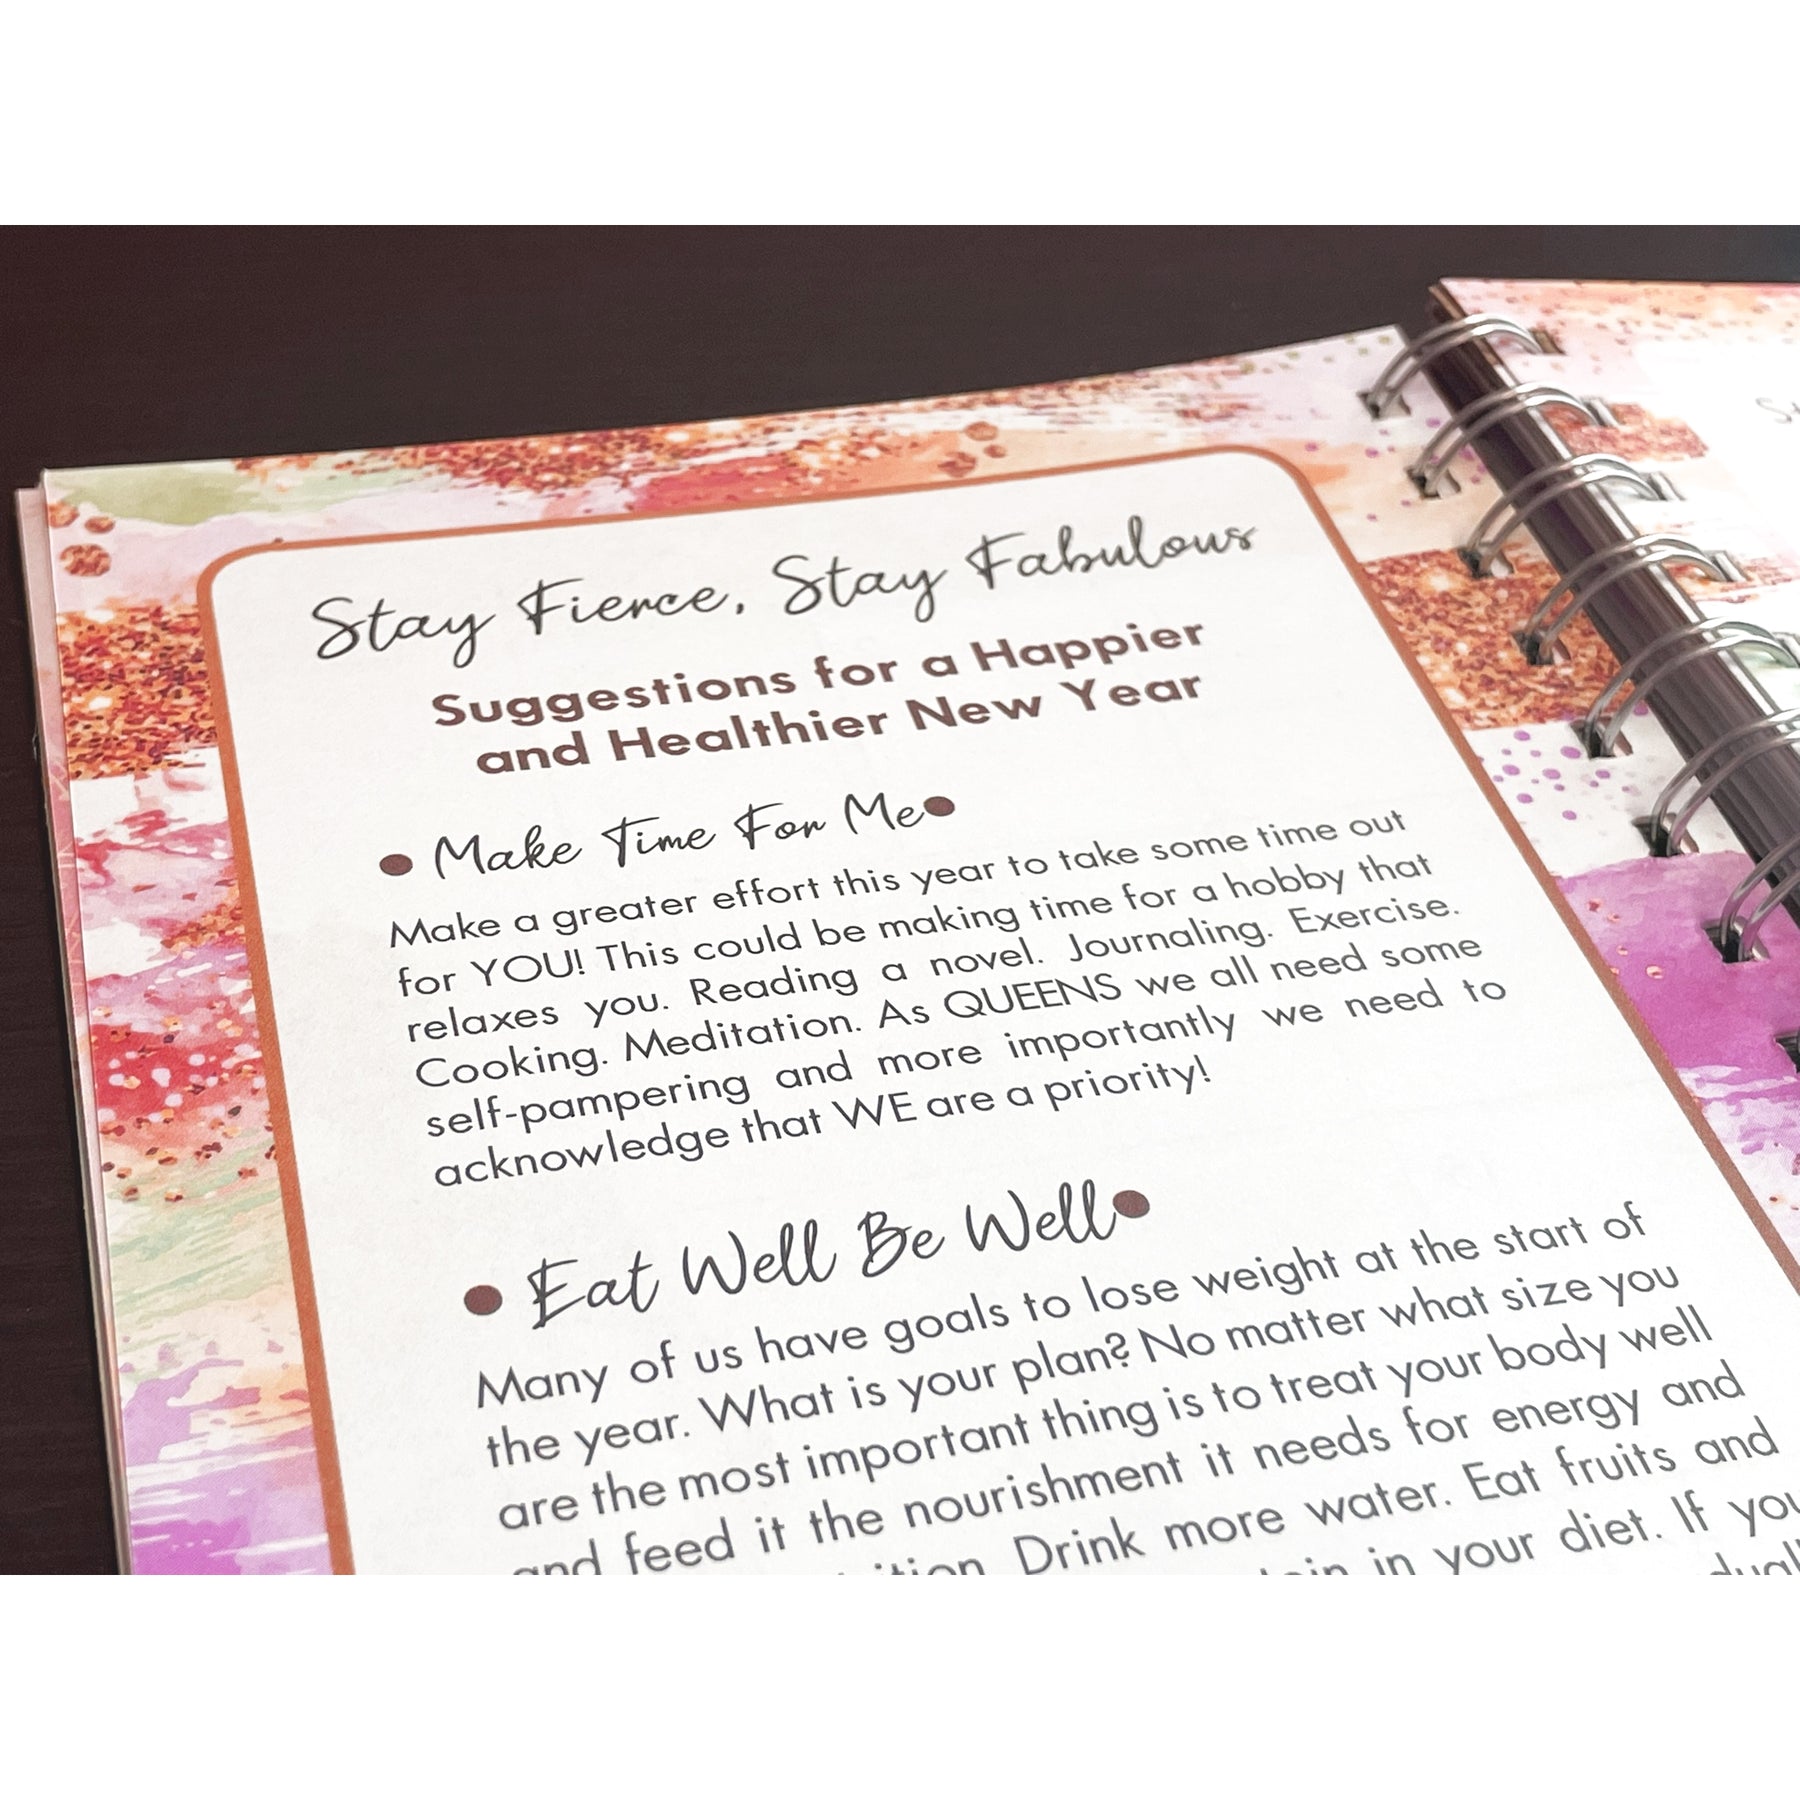 Stay Fierce, Stay Fabulous
Suggestions for a Happier
and Healthier New Year
• Make Time For Me •
Make a greater effort this year to take some time out
for YOU! This could be making time for a hobby that
relaxes you. Reading a novel. Journaling. Exercise.
Cooking. Meditation. As QUEENS we all need some
self-pampering and more importantly we need to
acknowledge that WE are a priority!
• Eat Well Be Well •
Many of us have goals to lose weight at the start of
the year. What is your plan? No matter what size you
are the most important thing is to treat your body well
and feed it the nourishment it needs for energy and
Drink more water. Eat fruits and
in your diet. If you